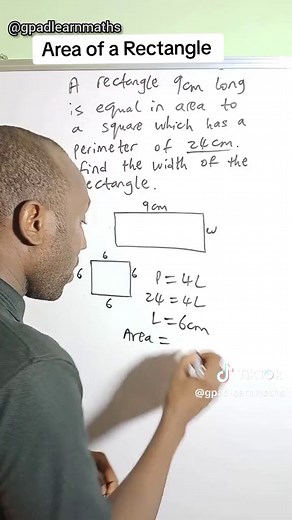 @gpadlearnmaths
Area of a Rectangle
A rectangle 9cm long
is equal in area to
a square which has a
perimeter of 24cm.
find the width of the
rectangle.
9cm
w
6
6
6
6
P = 4L
24 = 4L
L = 6cm
Area =
TikTok
@gpadlearnmaths